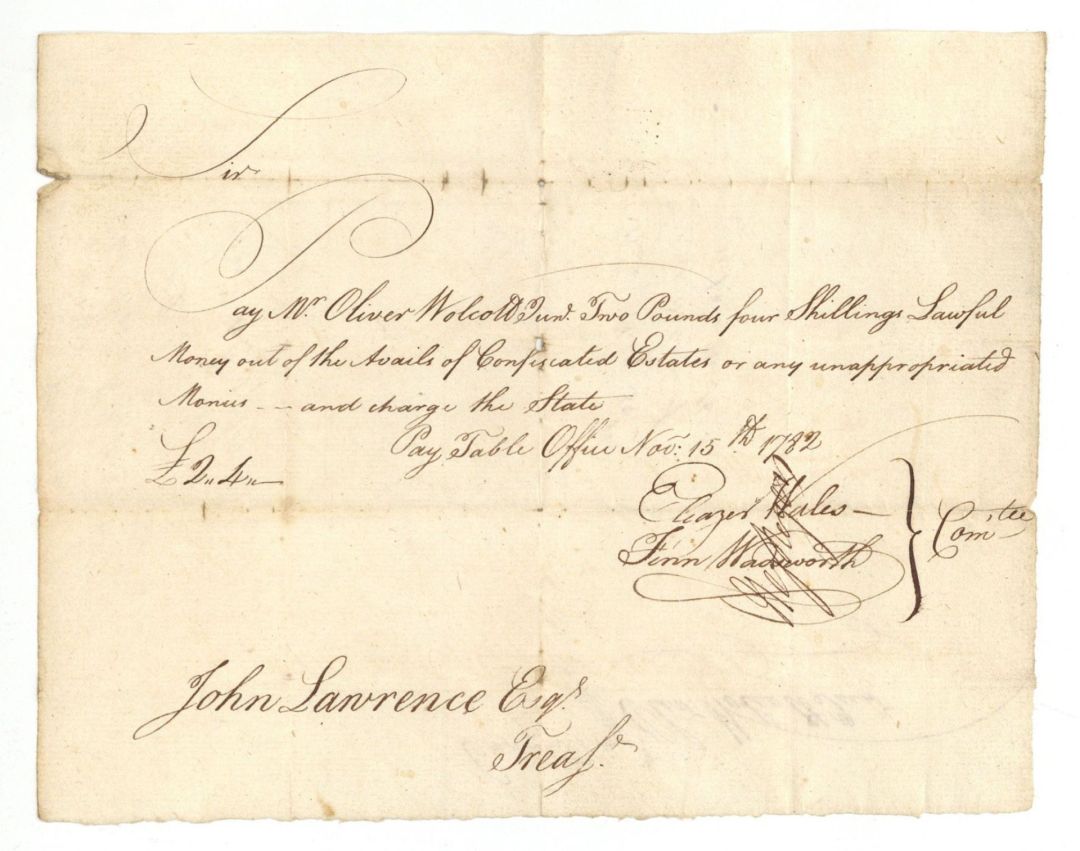 Sir
Pay Mr. Oliver Wolcott Junr. Two Pounds four Shillings Lawful
Money out of the Avails of Confiscated Estates or any unappropriated
Monies -- and charge the State
Pay Table Office Nov: 15th 1782
£2"4"—
Eleazer Wales —
Fenn Wadsworth
Comtee
John Lawrence Esqr.
Treasr.